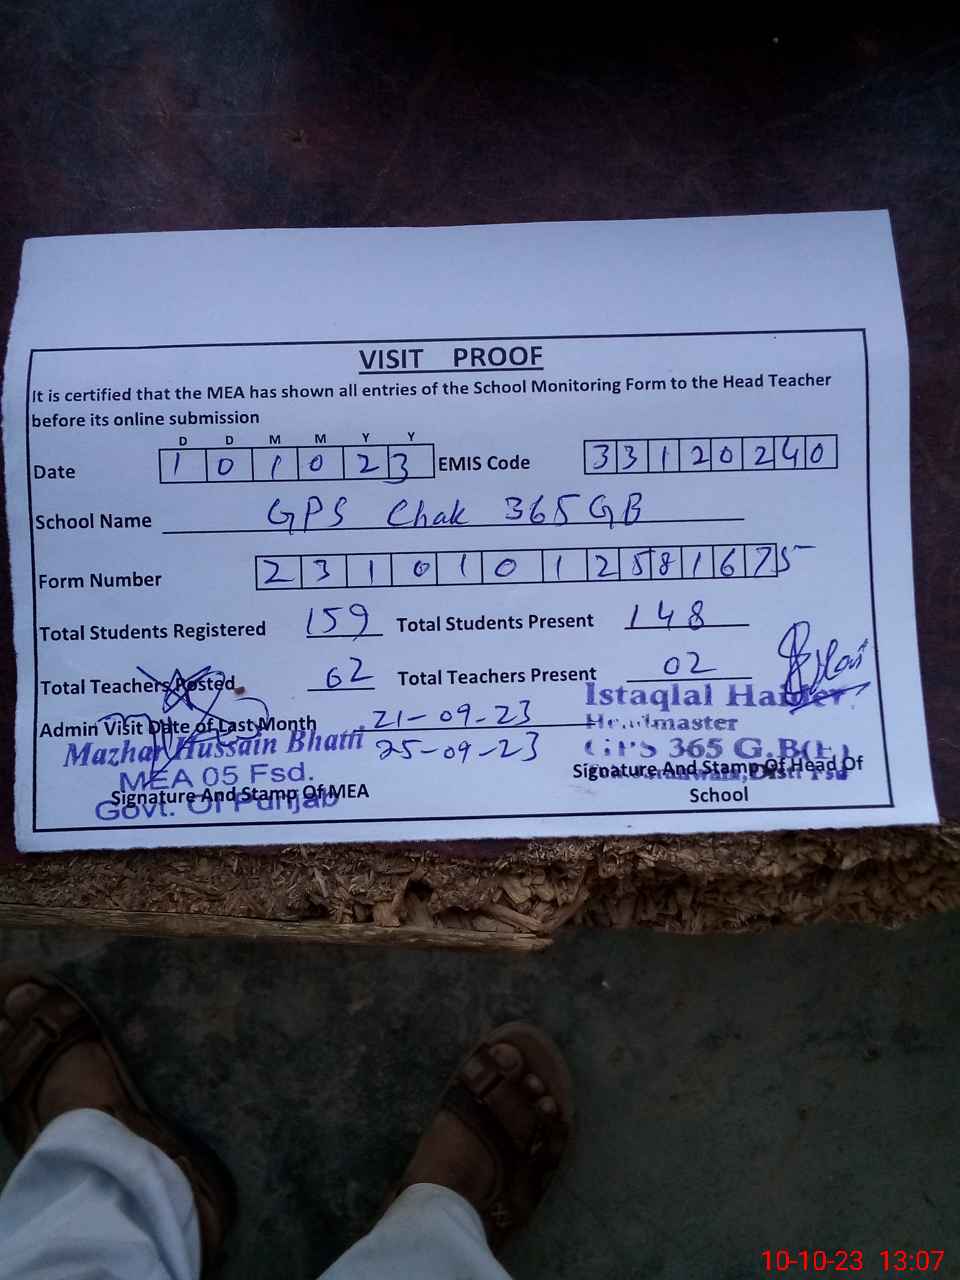 VISIT PROOF
It is certified that the MEA has shown all entries of the School Monitoring Form to the Head Teacher
before its online submission
D D M M Y Y
Date 1 0 1 0 2 3 EMIS Code 3 3 1 2 0 2 4 0
School Name GPS Chak 365 GB
Form Number 2 3 1 0 1 0 1 2 5 8 1 6 7 5
Total Students Registered 159 Total Students Present 148
Total Teachers Posted 02 Total Teachers Present 02
Admin Visit Date of Last Month 21-09-23
25-09-23
Mazhar Hussain Bhatti
MEA 05 Fsd.
Govt. Of Punjab
Signature And Stamp Of MEA
Istaqlal Haider
Headmaster
GPS 365 G.B(E),
Signature And Stamp Of Head Of
School
10-10-23 13:07